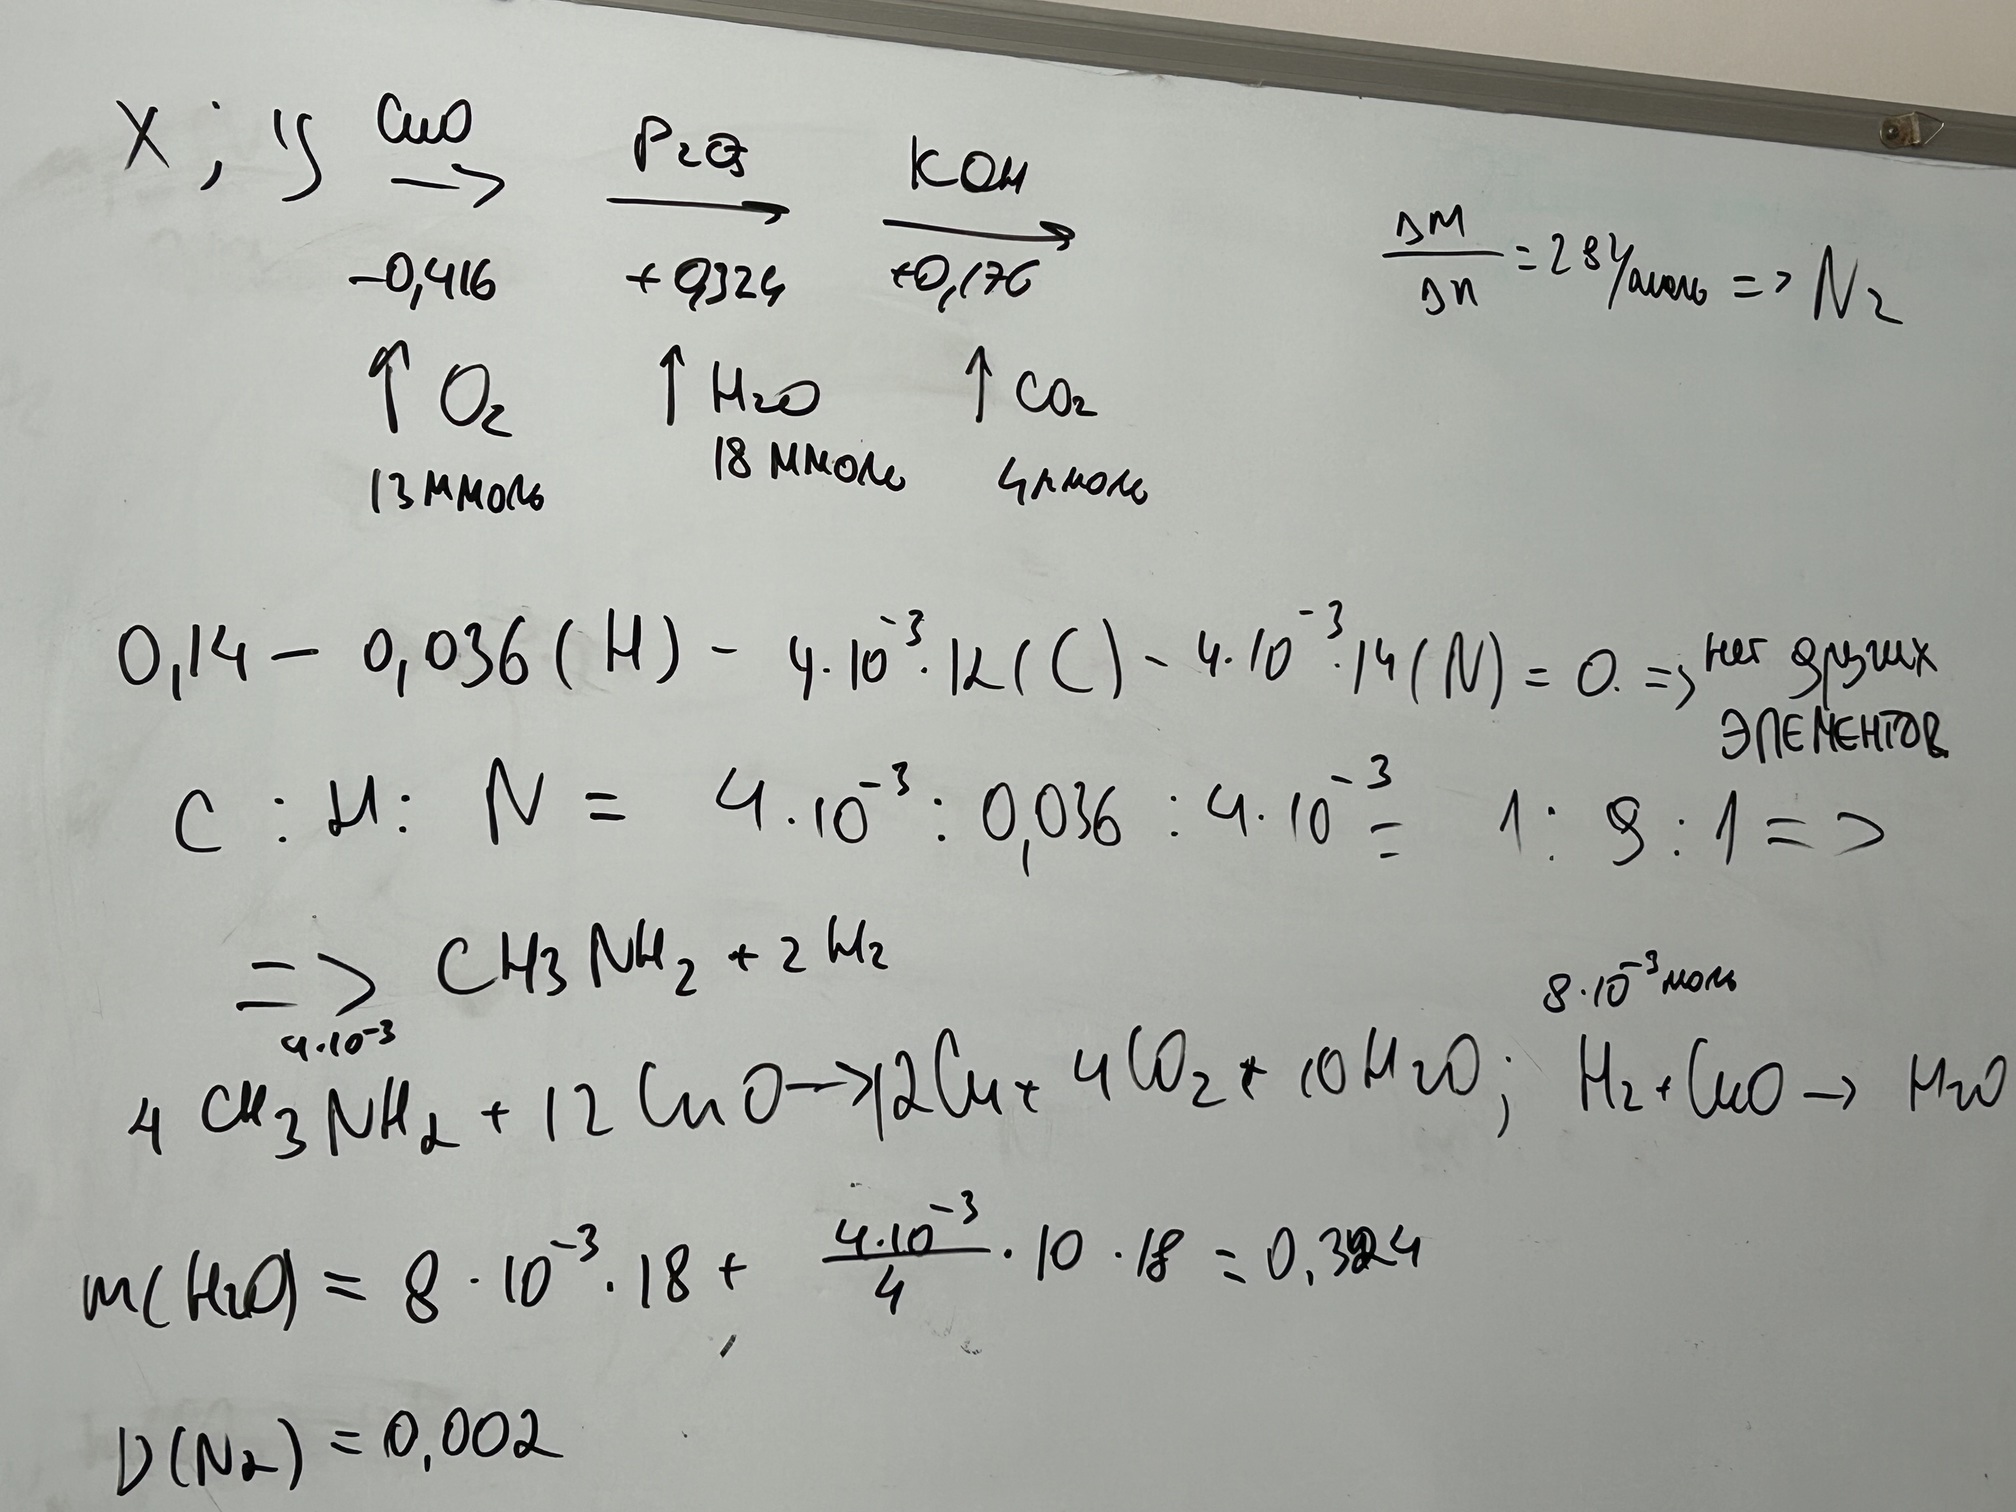 X ; y CuO → P₂O₅ → KOH →
-0,416 +0,324 +0,176
ΔM/Δn = 28 г/моль => N₂
↑ O₂ ↑ H₂O ↑ CO₂
13 ммоль 18 ммоль 4 ммоль
0,14 - 0,036 (H) - 4·10⁻³·12 (C) - 4·10⁻³·14 (N) = 0. => нет других
элементов
C : H : N = 4·10⁻³ : 0,036 : 4·10⁻³ = 1 : 9 : 1 =>
=> CH₃NH₂ + 2H₂
4·10⁻³ 8·10⁻³ моль
4 CH₃NH₂ + 12 CuO → 12Cu + 4CO₂ + 10H₂O ; H₂ + CuO → H₂O
m(H₂O) = 8·10⁻³·18 + 4·10⁻³/4 · 10 · 18 = 0,324
ν(N₂) = 0,002